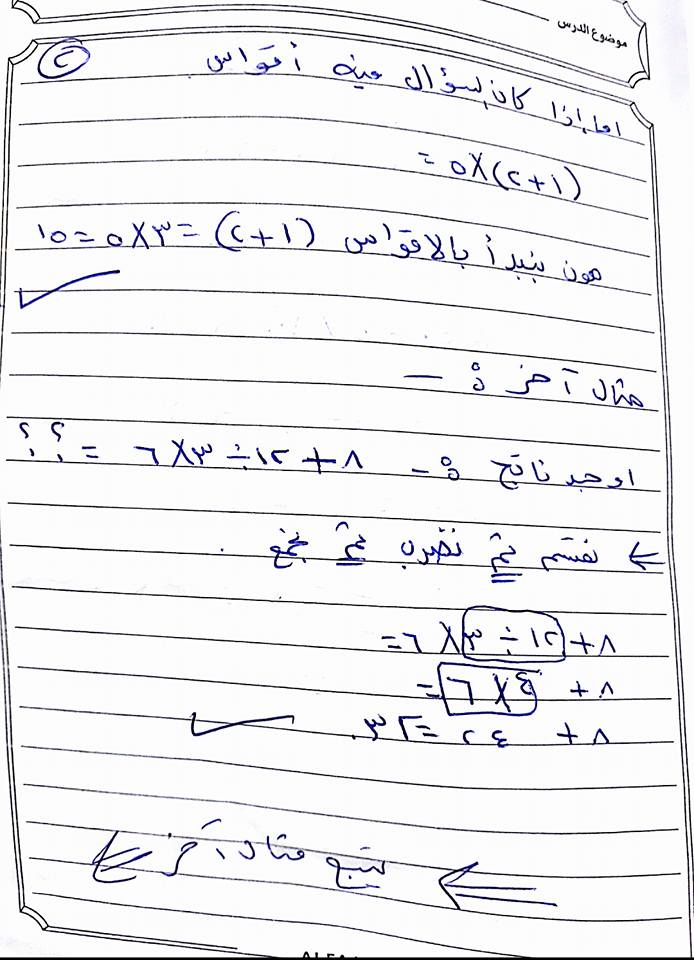 موضوع الدرس
٢
اما إذا كان لسؤال فيه أقواس
(١+٢)×٥ =
هون بنبدأ بالاقواس (١+٢) = ٣×٥ = ١٥
مثال آخر :-
اوجد ناتج :- ٨+١٢÷٣×٦ = ؟؟
← نقسم ثم نضرب ثم نجمع .
٨+١٢÷٣×٦=
٨+ ٤×٦ =
٨+ ٢٤ =٣٢.
يتبع مثال آخر